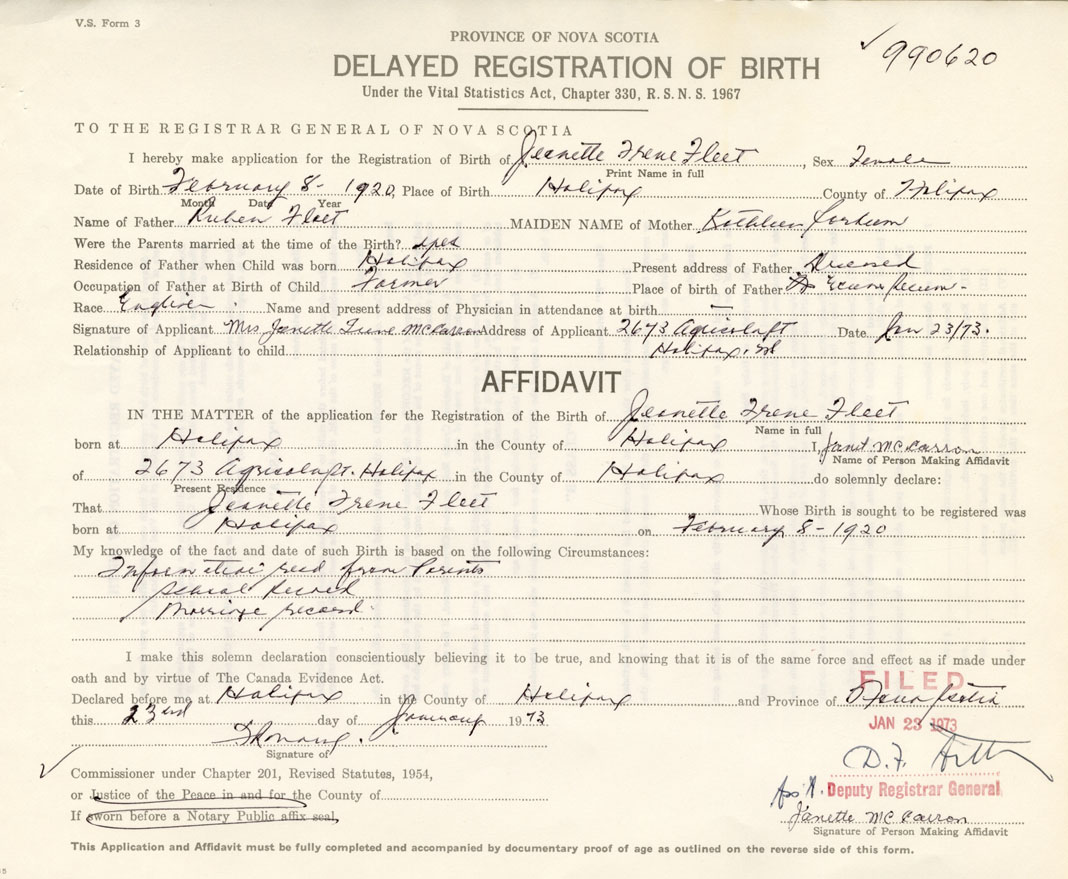 V.S. Form 3
PROVINCE OF NOVA SCOTIA
✓ 990620
DELAYED REGISTRATION OF BIRTH
Under the Vital Statistics Act, Chapter 330, R. S. N. S. 1967
TO THE REGISTRAR GENERAL OF NOVA SCOTIA
I hereby make application for the Registration of Birth of Jeanette Irene Fleet, Sex Female
Print Name in full
Date of Birth February 8- 1920, Place of Birth Halifax County of Halifax
Month Date Year
Name of Father Ruben Fleet MAIDEN NAME of Mother Kathleen
Were the Parents married at the time of the Birth? yes
Residence of Father when Child was born Halifax Present address of Father Deceased
Occupation of Father at Birth of Child Farmer Place of birth of Father Ecum Secum-
Race English Name and present address of Physician in attendance at birth —
Signature of Applicant Mrs Janette Irene McCarron Address of Applicant 2673 Agricola St Date Jan 23/73.
Relationship of Applicant to child Halifax, NS
AFFIDAVIT
IN THE MATTER of the application for the Registration of the Birth of Jeanette Irene Fleet
Name in full
born at Halifax in the County of Halifax I, Janet McCarron
Name of Person Making Affidavit
of 2673 Agricola St. Halifax in the County of Halifax do solemnly declare:
Present Residence
That Jeanette Irene Fleet Whose Birth is sought to be registered was
born at Halifax on February 8-1920
My knowledge of the fact and date of such Birth is based on the following Circumstances:
Information recd from Parents
School Record
Marriage record
I make this solemn declaration conscientiously believing it to be true, and knowing that it is of the same force and effect as if made under
oath and by virtue of The Canada Evidence Act.
FILED
Declared before me at Halifax in the County of Halifax and Province of Nova Scotia
this 23rd day of January 1973
JAN 23 1973
Signature of
D.F.
Commissioner under Chapter 201, Revised Statutes, 1954,
or Justice of the Peace in and for the County of
Deputy Registrar General
If sworn before a Notary Public affix seal,
Janette McCarron
Signature of Person Making Affidavit
This Application and Affidavit must be fully completed and accompanied by documentary proof of age as outlined on the reverse side of this form.